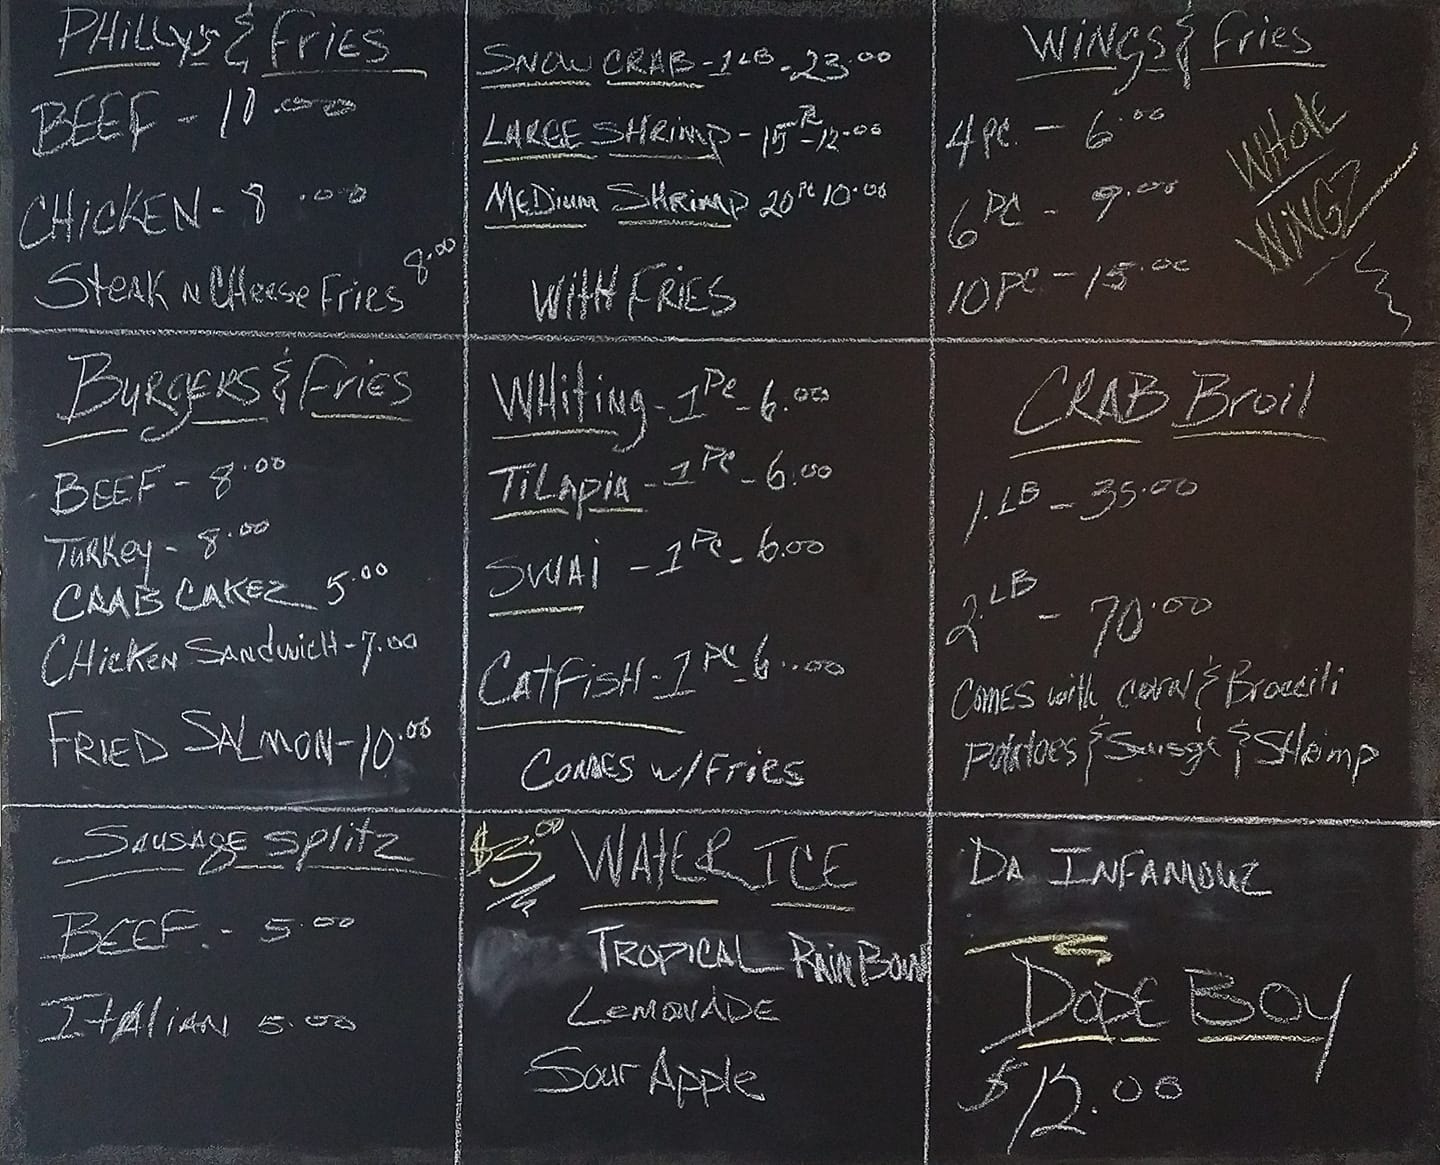 PHillys & Fries
BEEF - 10.00
CHicKEN - 8.00
Steak n CHeese Fries 8.00
SNOW CRAB - 1 LB - 23.00
LARGE SHRimp - 15 Pc - 12.00
MeDium SHRimp 20 Pc 10.00
WitH FRIES
WiNGS & Fries
4 PC. - 6.00
6 PC - 9.00
10 PC - 15.00
WHole
WiNGZ
BuRgeRS & Fries
BEEF - 8.00
TuRKey - 8.00
CRAB CAKEZ 5.00
CHicKEN SANDwicH - 7.00
FRIED SALMON - 10.00
WHiting - 1 Pc - 6.00
TiLapia - 1 PC - 6.00
SWAi - 1 Pc - 6.00
CAtFisH - 1 PC - 6.00
COMES w/Fries
CRAB Broil
1.LB - 35.00
2.LB - 70.00
COMES with corn & Broccili
Potatoes & Sausge & SHrimp
SAUSAGE Splitz
BEEF. - 5.00
ItAliAN 5.00
$3.00
WAtER ICE
TROPICAL RAiNBOW
LEMONADE
Sour Apple
DA INFAMOUZ
DOPE BOY
$12.00